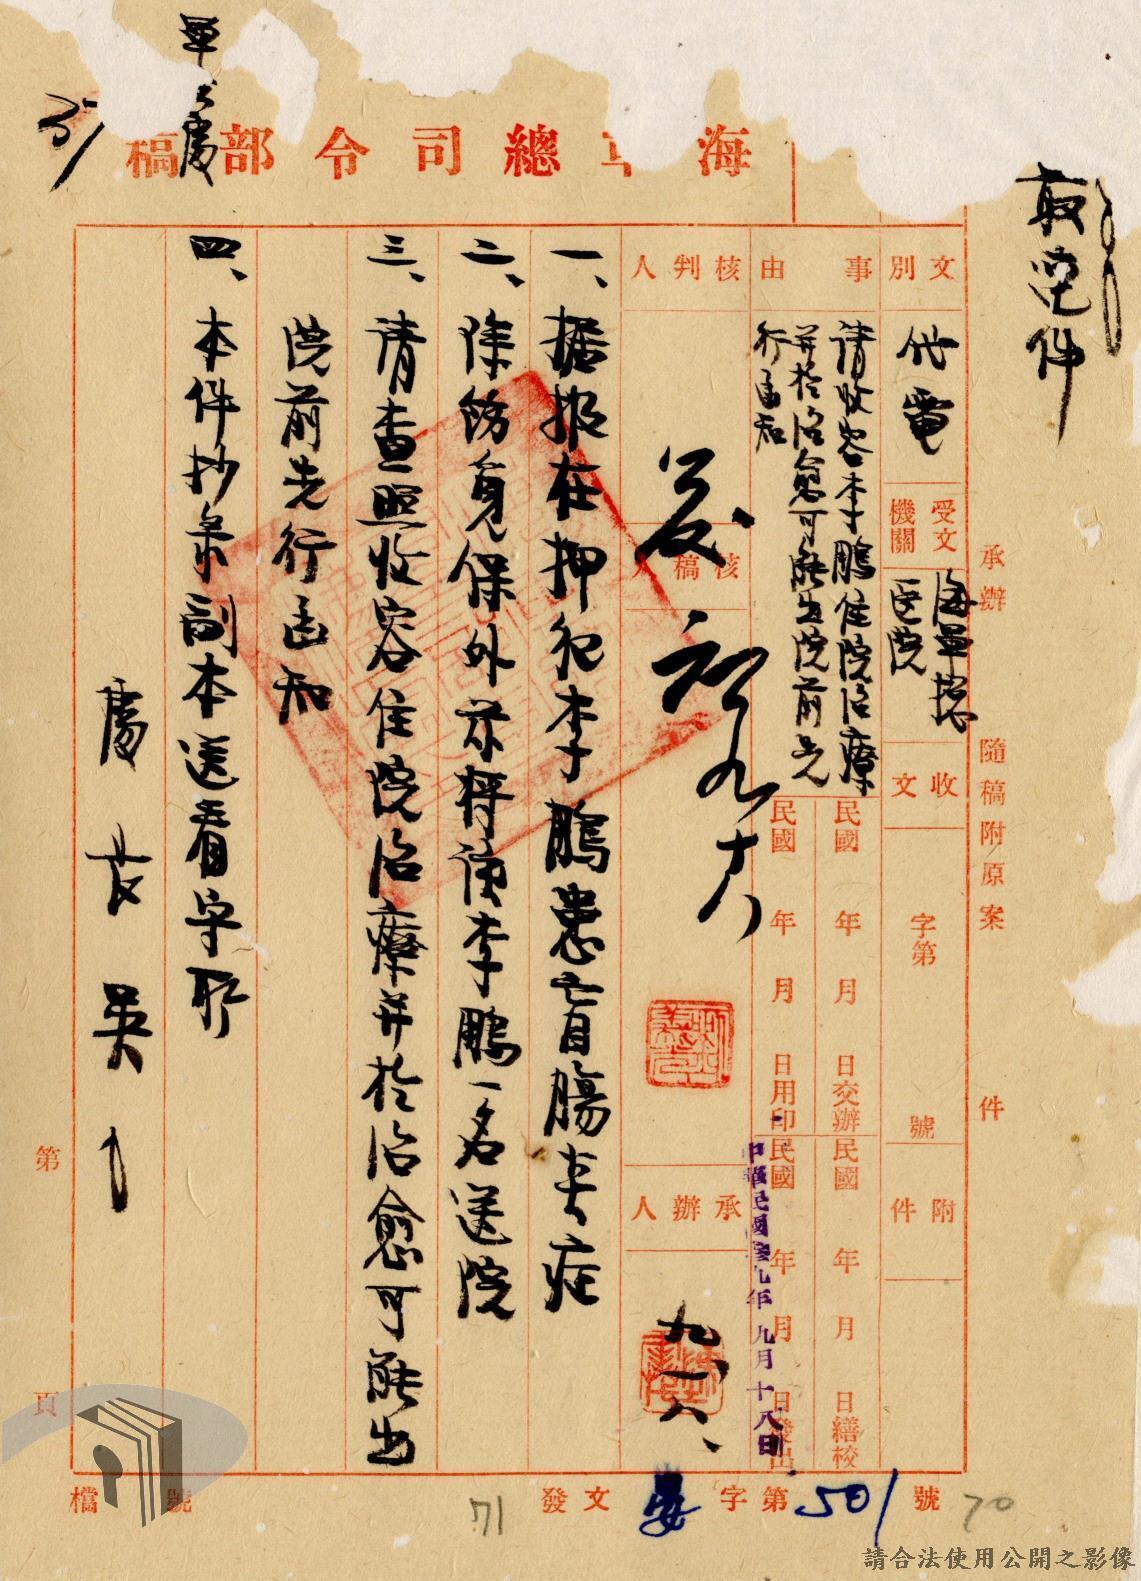 最速件
承辦
隨稿附原案
件
海軍總司令部稿
文別
代電
受文機關
海軍總醫院
收文
字第
號
附件
事由
請收容李鵬住院治療
并於治愈可能出院前先
行函知
民國 年 月 日交辦
民國 年 月 日繕校
民國 年 月 日用印
民國 年 月 日發出
中華民國參九年九月十八日
核判人
核稿人
承辦人
九一八、
一、據报在押犯李鵬患盲腸炎症
二、除飭覓保外茲將該李鵬一名送院
三、请查照收容住院治療并於治愈可能出
院前先行函知
四、本件抄录副本送看守所
處長吳
第
頁
檔
號
71
發文
字第501號
70
請合法使用公開之影像